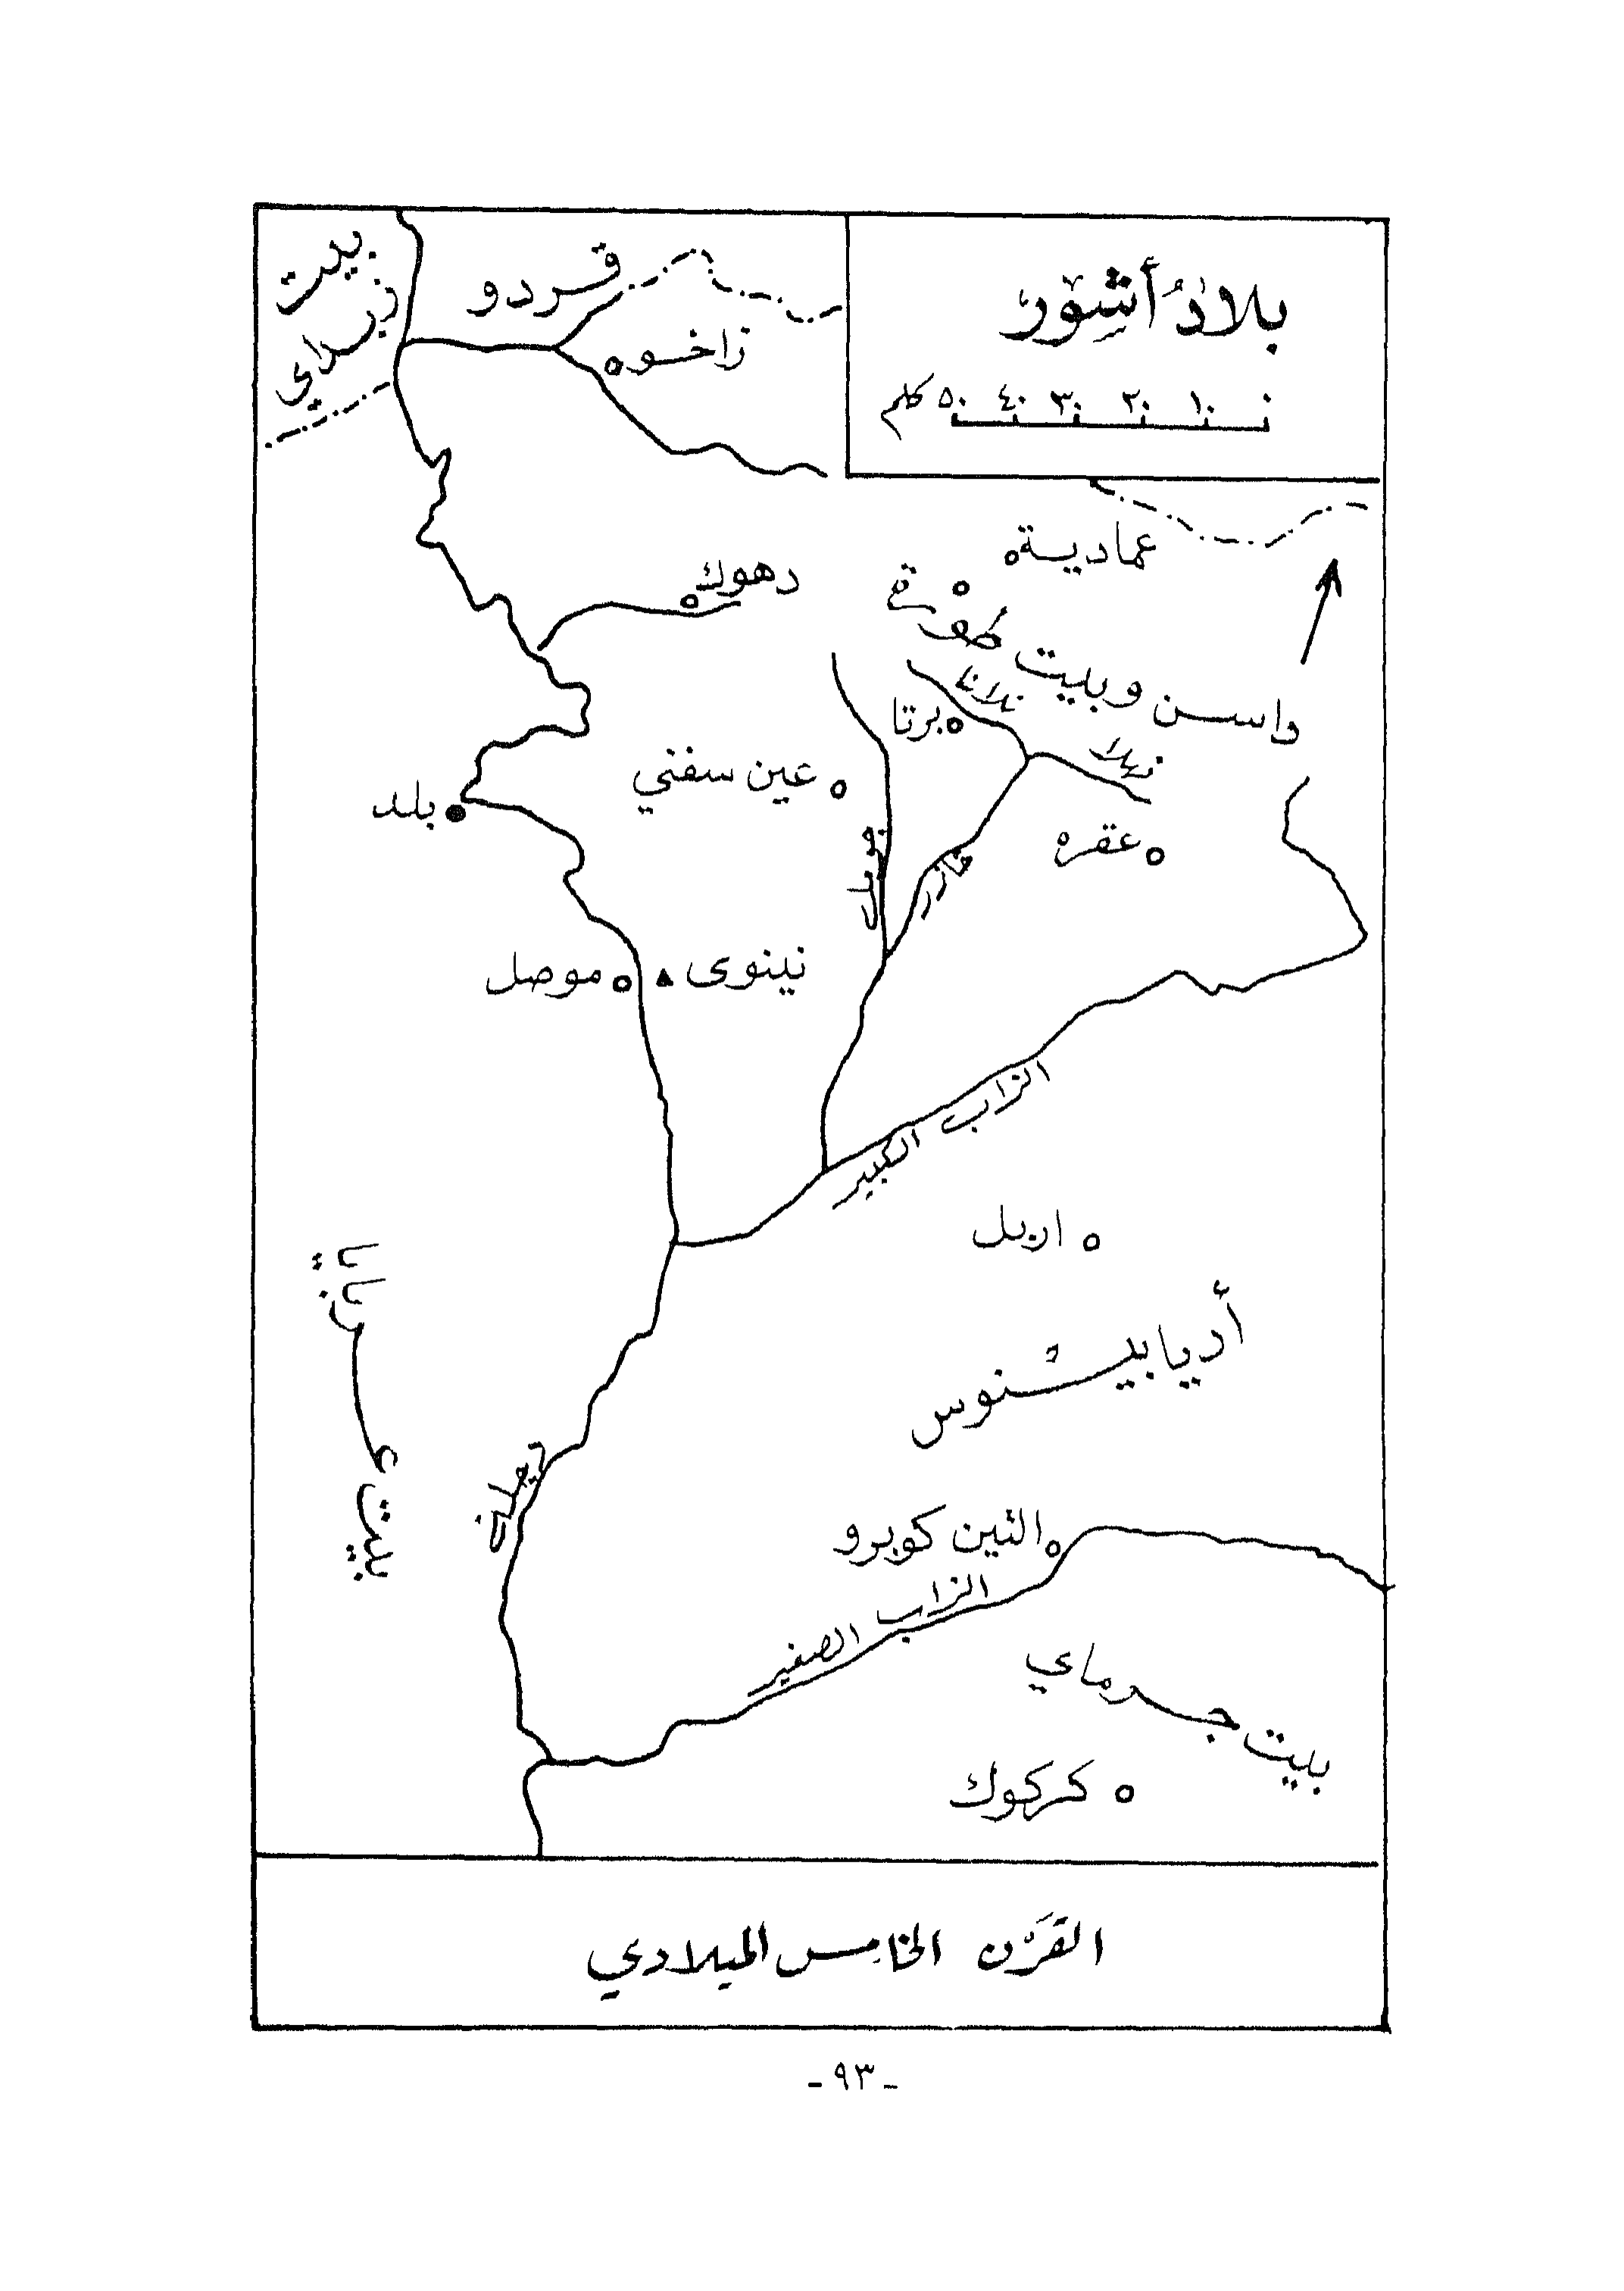 بلادُ أشور
٠ ١٠ ٢٠ ٣٠ ٤٠ ٥٠ كلم
بيت
زبداي
قردو
زاخو
عمادية
دهوك
داسن وبيت طهرة
برتا
عين سفني
بلد
عقره
جومل
خازر
نينوى
موصل
الزاب الكبير
اربل
بيت عربايا
أديابينوس
دجلة
التين كوبرو
الزاب الصغير
بيت جرماي
كركوك
القرْن الخامس الميلادي
-٩٣-